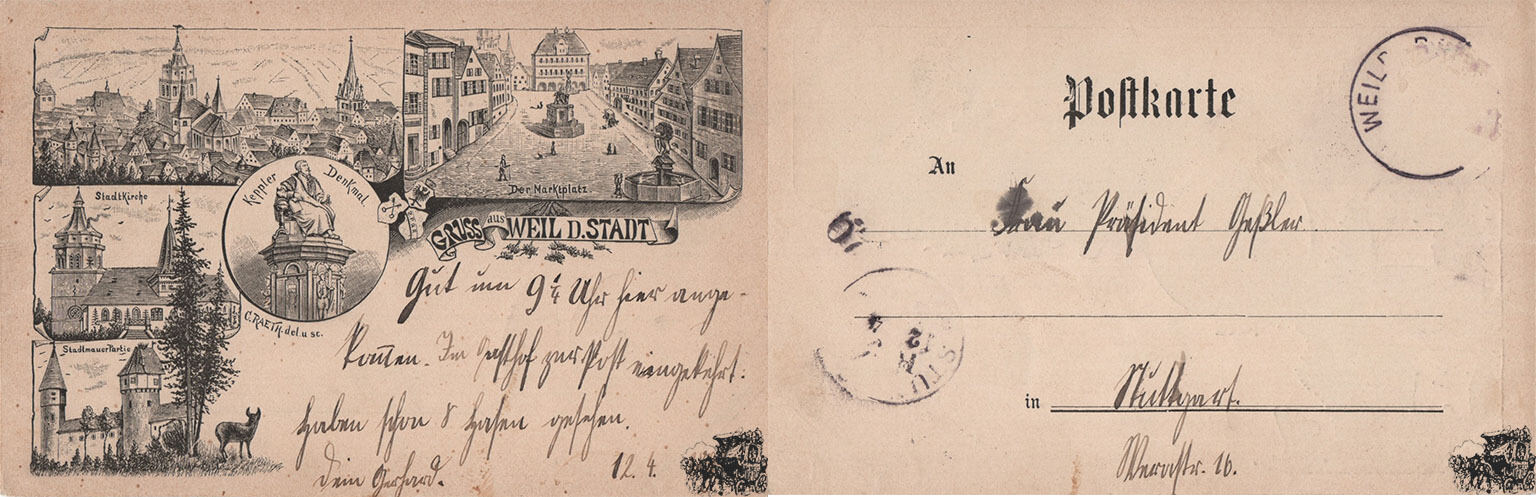 Der Marktplatz.
Stadtkirche
Keppler Denkmal
GRUSS aus WEIL D. STADT
C. RAETH. del. u sc.
Stadtmauer Partie
Gut um 9 1/4 Uhr hier ange-
kommen. Im Gasthof zur Post eingekehrt.
Haben schon 8 Hasen gesehen.
Dein Gerhard.
12.4.
Postkarte
WEIL
An
Frau Präsident Geßler.
STU
in Stuttgart.
Werastr. 16.